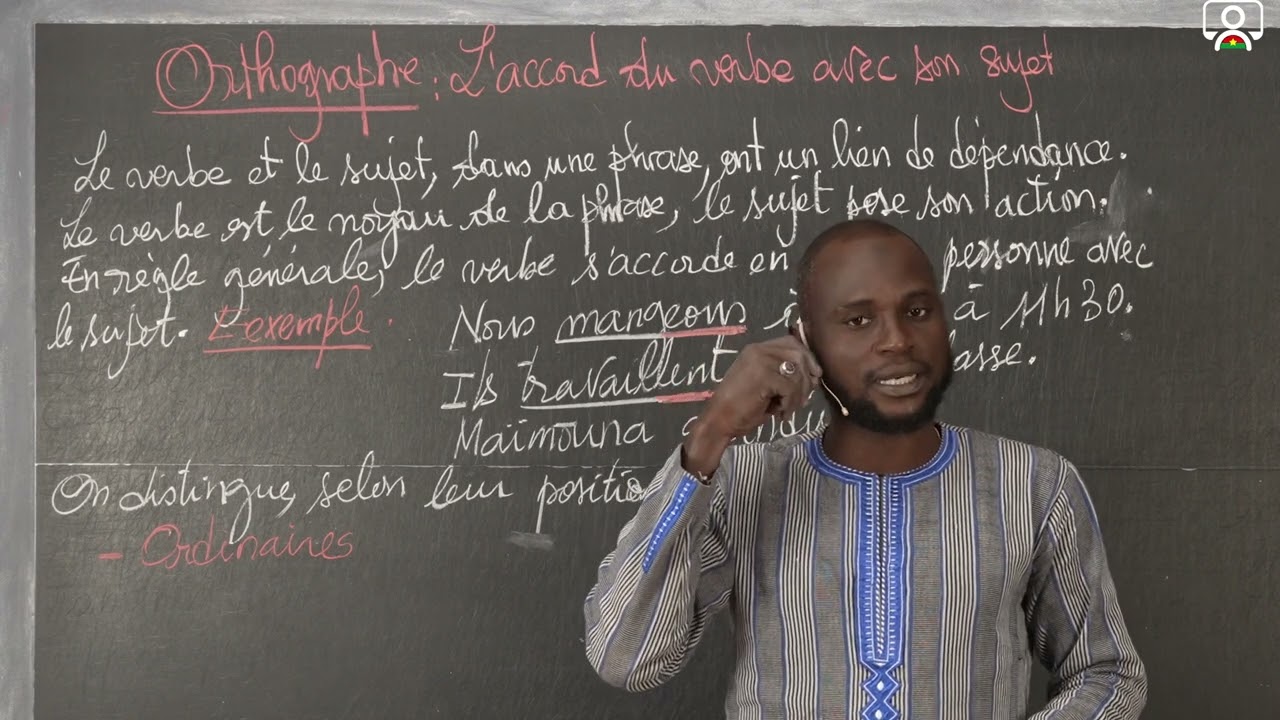 Orthographe : L'accord du verbe avec son sujet
Le verbe et le sujet, dans une phrase, ont un lien de dépendance.
Le verbe est le noyau de la phrase, le sujet pose son action.
En règle générale, le verbe s'accorde en personne avec
le sujet. L'exemple. Nous mangeons à 11h30.
Ils travaillent
Maïmouna
On distingue, selon leur
- Ordinaires